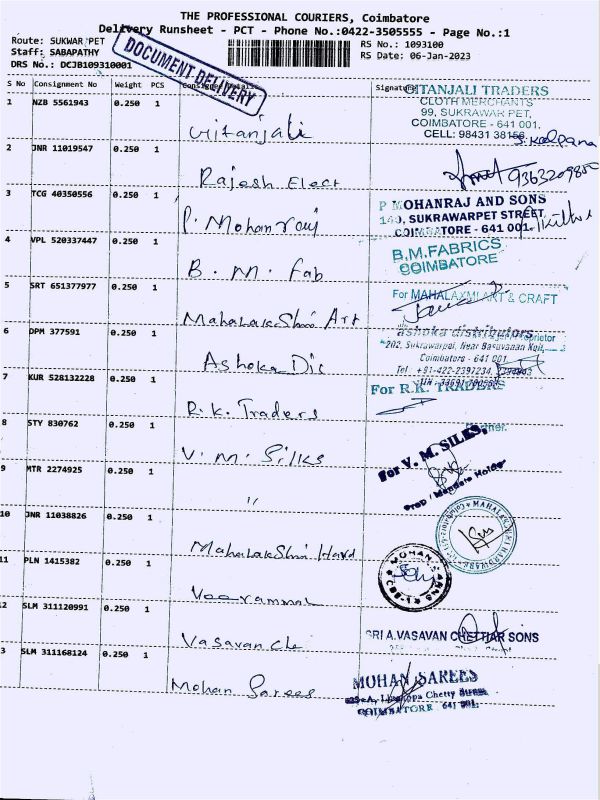 THE PROFESSIONAL COURIERS, Coimbatore
Delivery Runsheet - PCT - Phone No.:0422-3505555 - Page No.:1
Route: SUKWAR PET
RS No.: 1093100
Staff: SABAPATHY
RS Date: 06-Jan-2023
DRS No.: DCJB109310001
DOCUMENT DELIVERY
S No Consignment No Weight PCS Signature
1 NZB 5561943 0.250 1 Gitanjali
GITANJALI TRADERS
CLOTH MERCHANTS
99, SUKRAWAR PET,
COIMBATORE - 641 001.
CELL: 98431 38156
S. Kalpana
2 JNR 11019547 0.250 1 Rajesh Elect
9363209850
3 TCG 40350556 0.250 1 P. Mohanraj
P MOHANRAJ AND SONS
140, SUKRAWARPET STREET,
COIMBATORE - 641 001.
4 VPL 520337447 0.250 1 B. M. Fab
B.M.FABRICS
COIMBATORE
5 SRT 651377977 0.250 1 Mahalakshmi Art
For MAHALAXMI ART & CRAFT
Proprietor
6 DPM 377591 0.250 1 Ashoka Dis
ashoka distributors
202, Sukrawarpet, Near Basuvanan Koil,
Coimbatore - 641 001.
Tel : +91-422-2397234,
7 KUR 528132228 0.250 1 R. K. Traders
For R.K. TRADERS
8 STY 830762 0.250 1 V. M. Silks
For V. M. SILKS,
Prop / Mandate Holder
9 MTR 2274925 0.250 1 "
10 JNR 11038826 0.250 1 Mahalakshmi Hard
11 PLN 1415382 0.250 1
MOHAN
12 SLM 311120991 0.250 1 Vasavan Che
SRI A.VASAVAN CHETTIAR SONS
3 SLM 311168124 0.250 1 Mohan Sarees
MOHAN SAREES
Chetty Street
COIMBATORE - 641 001.